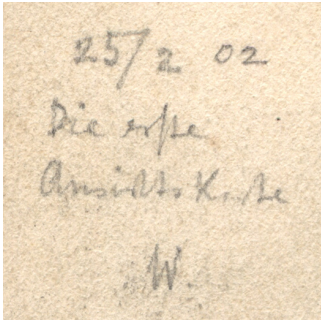 25/2 02
Die erste
Ansichtskarte
W.